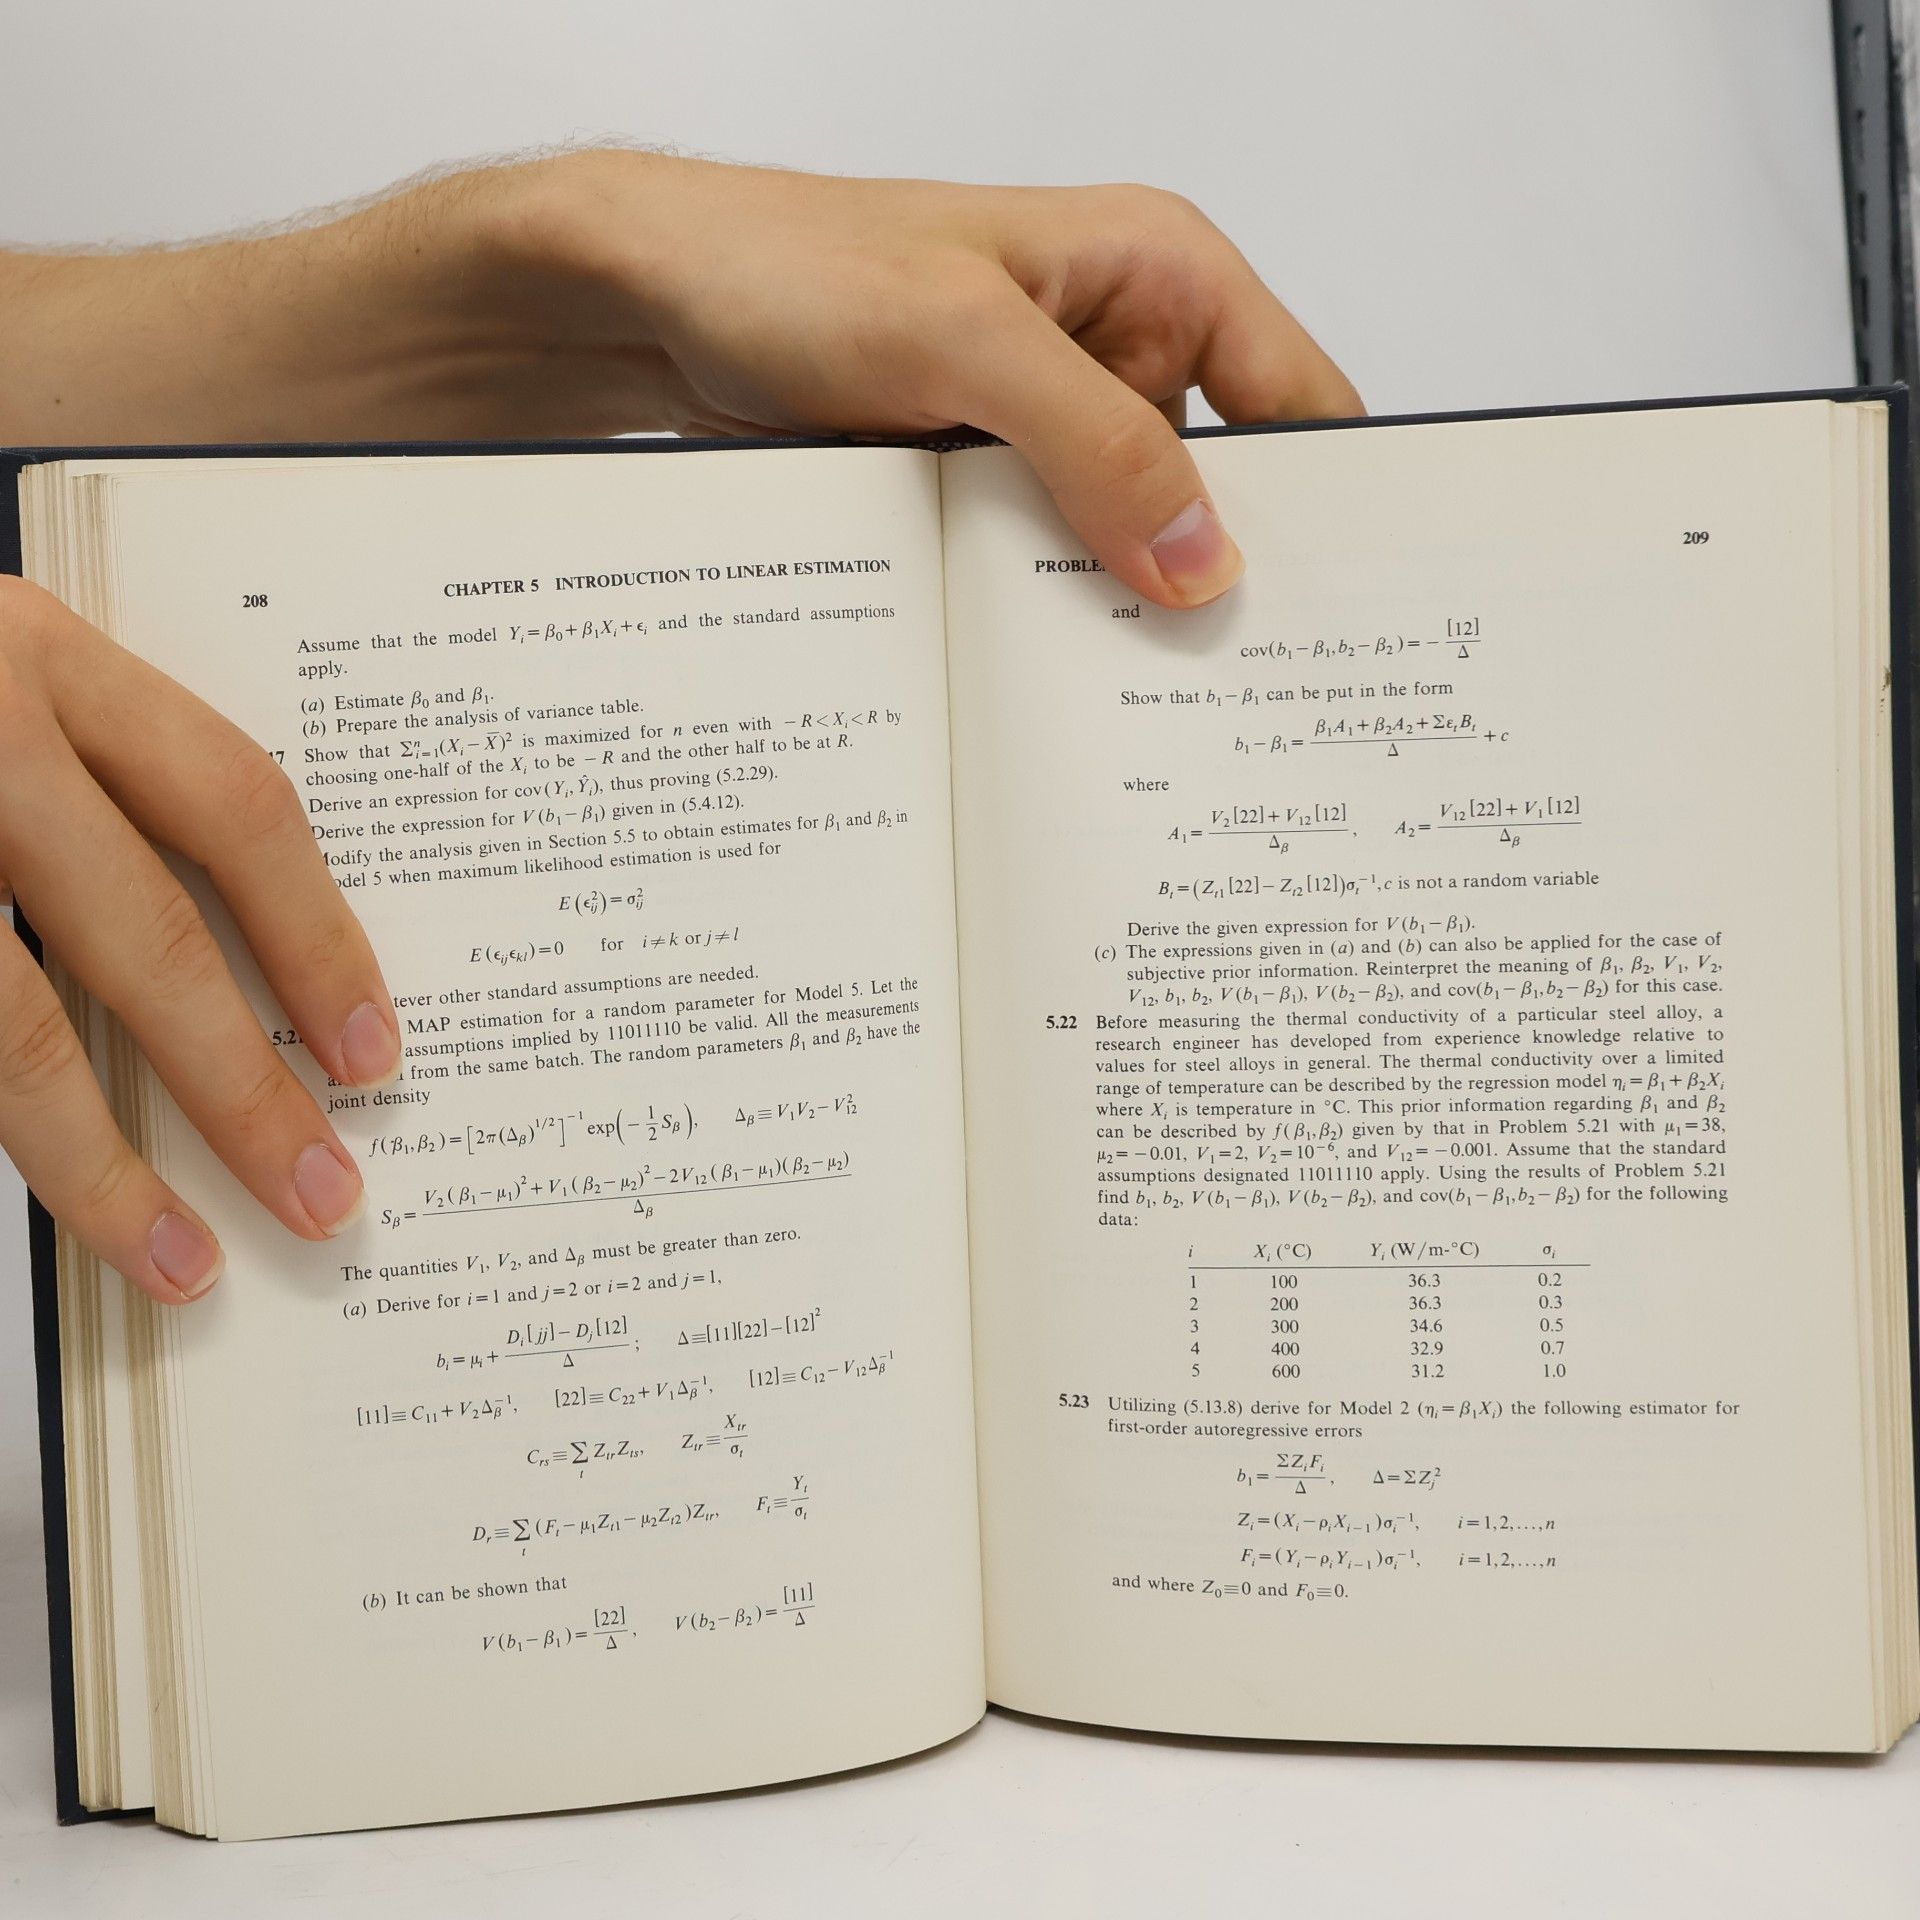 208
CHAPTER 5 INTRODUCTION TO LINEAR ESTIMATION
Assume that the model Yᵢ=β₀+β₁Xᵢ+ϵᵢ and the standard assumptions
apply.
(a) Estimate β₀ and β₁.
(b) Prepare the analysis of variance table.
17 Show that Σⁿᵢ₌₁(Xᵢ−X̄)² is maximized for n even with −R<Xᵢ<R by
choosing one-half of the Xᵢ to be −R and the other half to be at R.
Derive an expression for cov(Yᵢ,Ŷᵢ), thus proving (5.2.29).
Derive the expression for V(b₁−β₁) given in (5.4.12).
Modify the analysis given in Section 5.5 to obtain estimates for β₁ and β₂ in
Model 5 when maximum likelihood estimation is used for
E(ϵ²ᵢⱼ)=σ²ᵢⱼ
E(ϵᵢⱼϵₖₗ)=0 for i≠k or j≠l
tever other standard assumptions are needed.
5.21 MAP estimation for a random parameter for Model 5. Let the
assumptions implied by 11011110 be valid. All the measurements
from the same batch. The random parameters β₁ and β₂ have the
joint density
f(β₁,β₂)=[2π(Δ_β)^{1/2}]⁻¹ exp(−½S_β), Δ_β≡V₁V₂−V²₁₂
S_β=(V₂(β₁−μ₁)²+V₁(β₂−μ₂)²−2V₁₂(β₁−μ₁)(β₂−μ₂))/Δ_β
The quantities V₁, V₂, and Δ_β must be greater than zero.
(a) Derive for i=1 and j=2 or i=2 and j=1,
bᵢ=μᵢ+(Dᵢ[jj]−Dⱼ[12])/Δ; Δ≡[11][22]−[12]²
[11]≡C₁₁+V₂Δ_β⁻¹, [22]≡C₂₂+V₁Δ_β⁻¹, [12]≡C₁₂−V₁₂Δ_β⁻¹
C_rs≡Σ_t Z_tr Z_ts, Z_tr≡X_tr/σ_t
D_r≡Σ_t (F_t−μ₁Z_t1−μ₂Z_t2)Z_tr, F_t≡Y_t/σ_t
(b) It can be shown that
V(b₁−β₁)=[22]/Δ, V(b₂−β₂)=[11]/Δ
209
PROBLE
and
cov(b₁−β₁,b₂−β₂)=−[12]/Δ
Show that b₁−β₁ can be put in the form
b₁−β₁=(β₁A₁+β₂A₂+Σε_tB_t)/Δ+c
where
A₁=(V₂[22]+V₁₂[12])/Δ_β, A₂=(V₁₂[22]+V₁[12])/Δ_β
B_t=(Z_t1[22]−Z_t2[12])σ_t⁻¹, c is not a random variable
Derive the given expression for V(b₁−β₁).
(c) The expressions given in (a) and (b) can also be applied for the case of
subjective prior information. Reinterpret the meaning of β₁, β₂, V₁, V₂,
V₁₂, b₁, b₂, V(b₁−β₁), V(b₂−β₂), and cov(b₁−β₁,b₂−β₂) for this case.
5.22 Before measuring the thermal conductivity of a particular steel alloy, a
research engineer has developed from experience knowledge relative to
values for steel alloys in general. The thermal conductivity over a limited
range of temperature can be described by the regression model ηᵢ=β₁+β₂Xᵢ
where Xᵢ is temperature in °C. This prior information regarding β₁ and β₂
can be described by f(β₁,β₂) given by that in Problem 5.21 with μ₁=38,
μ₂=−0.01, V₁=2, V₂=10⁻⁶, and V₁₂=−0.001. Assume that the standard
assumptions designated 11011110 apply. Using the results of Problem 5.21
find b₁, b₂, V(b₁−β₁), V(b₂−β₂), and cov(b₁−β₁,b₂−β₂) for the following
data:
i Xᵢ(°C) Yᵢ(W/m-°C) σᵢ
1 100 36.3 0.2
2 200 36.3 0.3
3 300 34.6 0.5
4 400 32.9 0.7
5 600 31.2 1.0
5.23 Utilizing (5.13.8) derive for Model 2 (ηᵢ=β₁Xᵢ) the following estimator for
first-order autoregressive errors
b₁=ΣZᵢFᵢ/Δ, Δ=ΣZⱼ²
Zᵢ=(Xᵢ−ρᵢXᵢ₋₁)σᵢ⁻¹, i=1,2,...,n
Fᵢ=(Yᵢ−ρᵢYᵢ₋₁)σᵢ⁻¹, i=1,2,...,n
and where Z₀≡0 and F₀≡0.